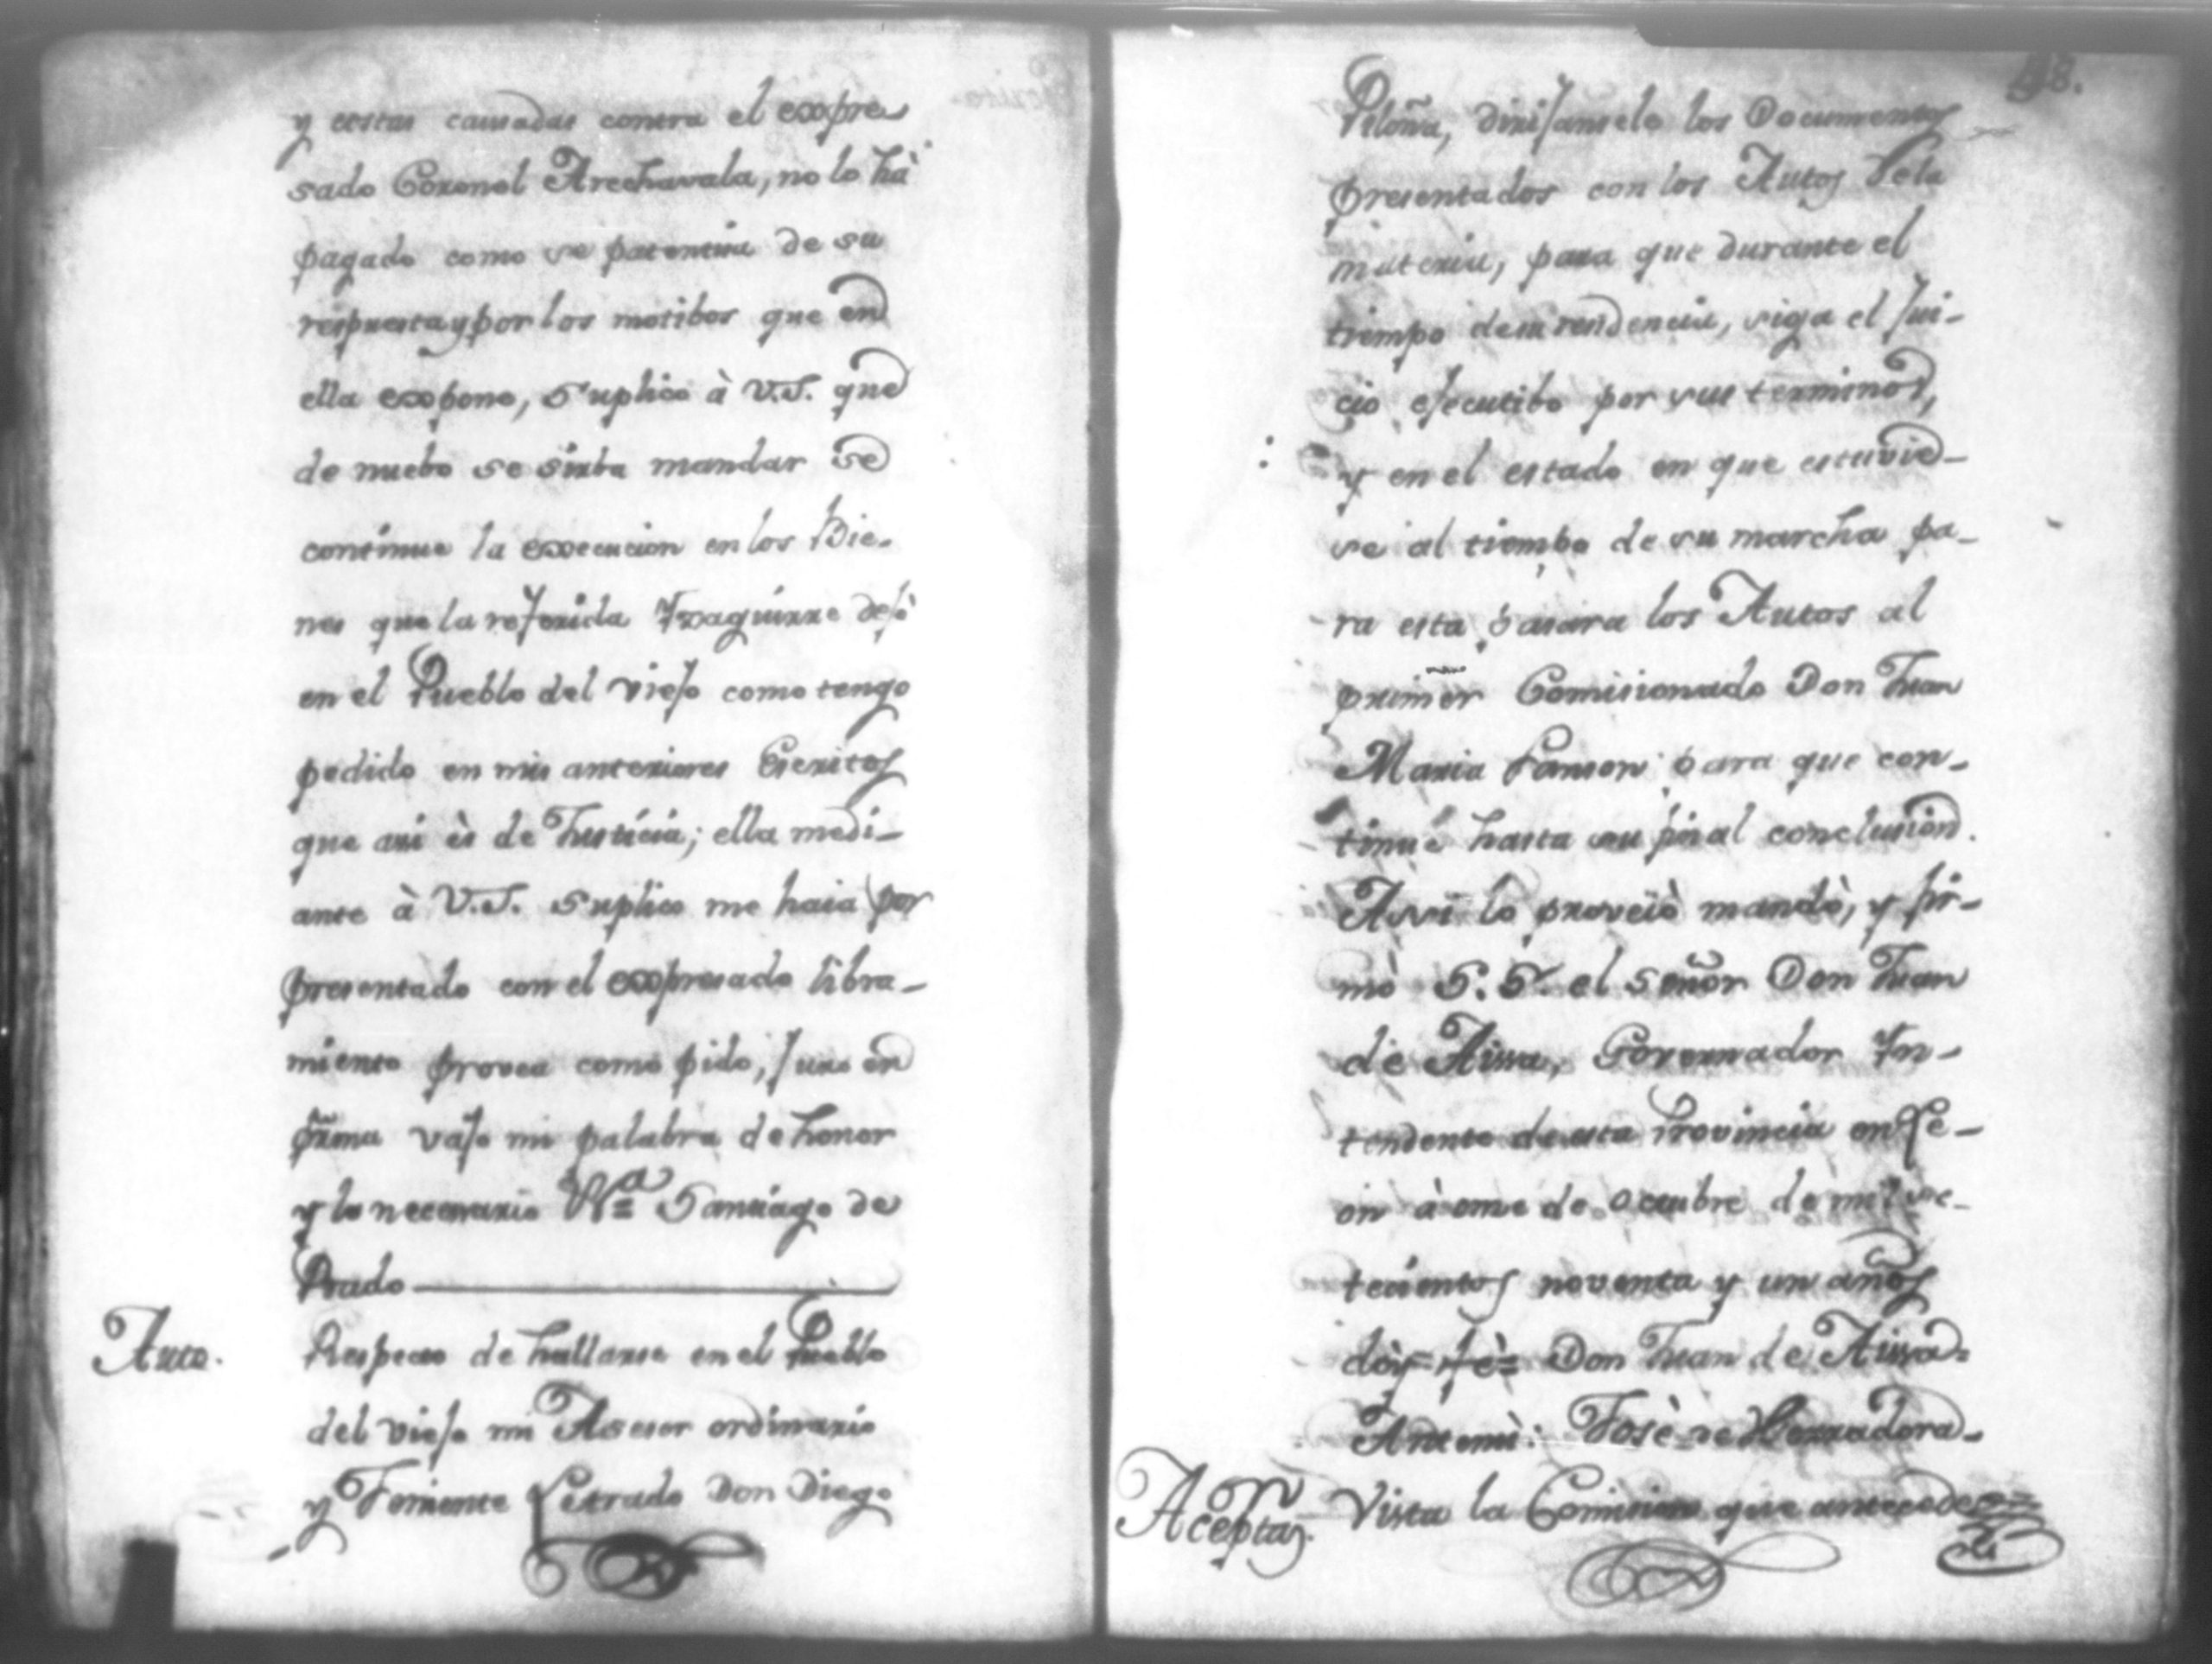 y costas causadas contra el expre
sado Coronel Arechavala, no lo hà
pagado como se patentiza de su
respuesta y por los motibos que en
ella expone, Suplico à V.S. que
de nuebo se sirba mandar se
continue la execucion en los Bie-
nes que la referida Yzaguirre dejò
en el Pueblo del viejo como tengo
pedido en mis anteriores Escritos
que asi ès de Justicia; ella medi-
ante à V.S. Suplico me haia por
presentado con el expresado libra-
miento provea como pido, juro en
forma vajo mi palabra de honor
y lo necesario Santiago de
Prado
Auto.
Respecto de hallarse en el Pueblo
del viejo mi Asesor ordinario
y Teniente Letrado Don Diego
48.
Piloña, dirijansele los Documentos
presentados con los Autos dela
materia, para que durante el
tiempo desu residencia, siga el jui-
cio ejecutibo por sus terminos,
y en el estado en que estuvie-
se al tiempo de su marcha pa-
ra esta pasara los Autos al
primer Comisionado Don Juan
Maria para que con-
tinuè hasta su final conclusion.
Assi lo proveiò mandò, y fir-
mò S.S. el señor Don Juan
de Aissa, Governador Yn-
tendente de esta Provincia en Le-
on à onse de octubre de mil se-
tecientos noventa y un años
dòy feè= Don Juan de Aissa=
Antemì: Josè de Herradora-
Aceptaon.
Vista la Comision que antecede